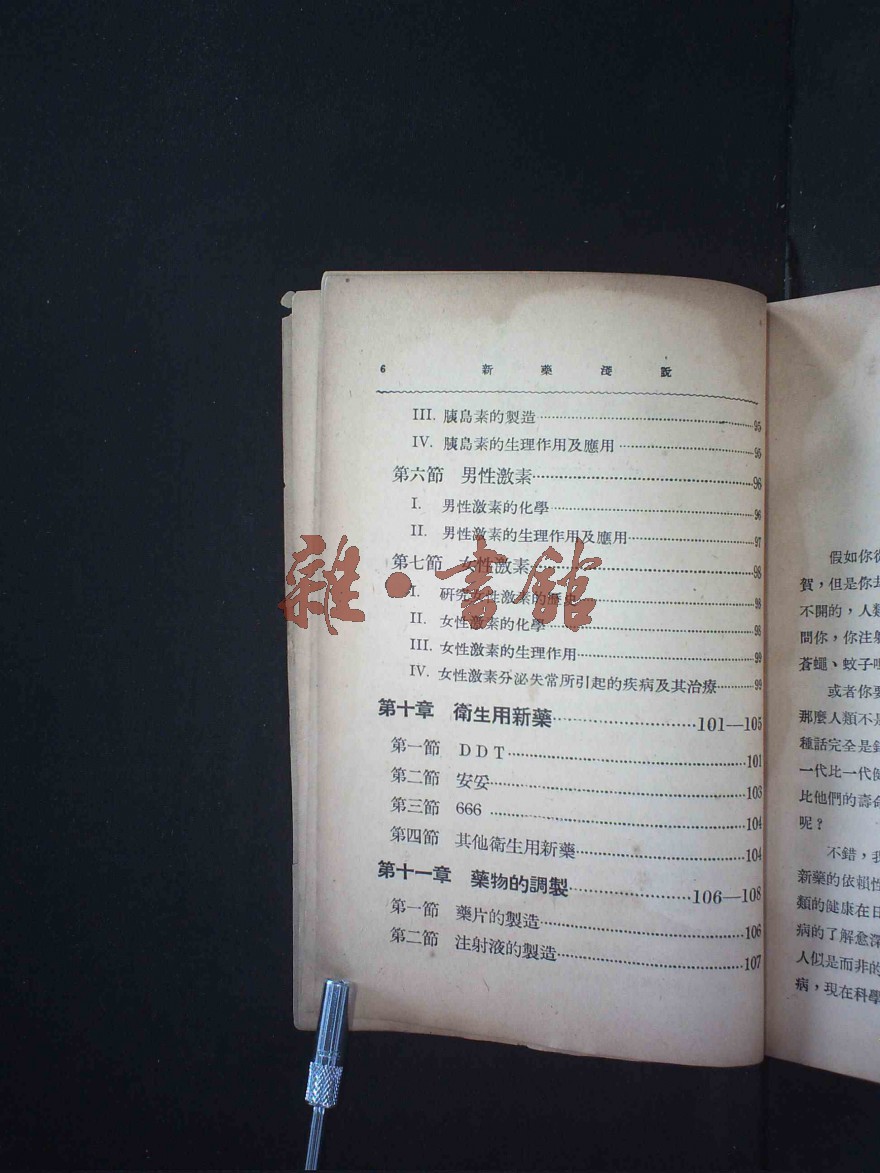 6 新藥淺說
III. 胰島素的製造 95
IV. 胰島素的生理作用及應用 95
第六節 男性激素 96
I. 男性激素的化學 96
II. 男性激素的生理作用及應用 97
第七節 女性激素 98
I. 研究女性激素的歷史 98
II. 女性激素的化學 98
III. 女性激素的生理作用 99
IV. 女性激素分泌失常所引起的疾病及其治療 99
第十章 衛生用新藥 101—105
第一節 DDT 101
第二節 安妥 103
第三節 666 104
第四節 其他衛生用新藥 104
第十一章 藥物的調製 106—108
第一節 藥片的製造 106
第二節 注射液的製造 107
雜·書館
假如你從
賀，但是你去
不開的，人類
問你，你注射
蒼蠅、蚊子
或者你要
那麼人類不是
種話完全是錯
一代比一代健
比他們的壽命
呢？
不錯，我
新藥的依賴性
類的健康在日
病的了解愈深
人似是而非的
病，現在科學